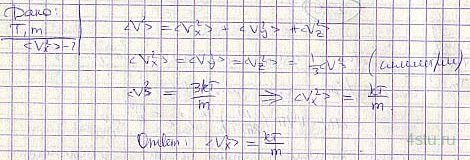 Дано:
T, m
<Vx²> - ?
<V²> = <Vx²> + <Vy²> + <Vz²>
<Vx²> = <Vy²> = <Vz²> = 1/3 <V²> (симметрия)
<V²> = 3kT/m ⇒ <Vx²> = kT/m
Ответ: <Vx²> = kT/m
4stu.ru